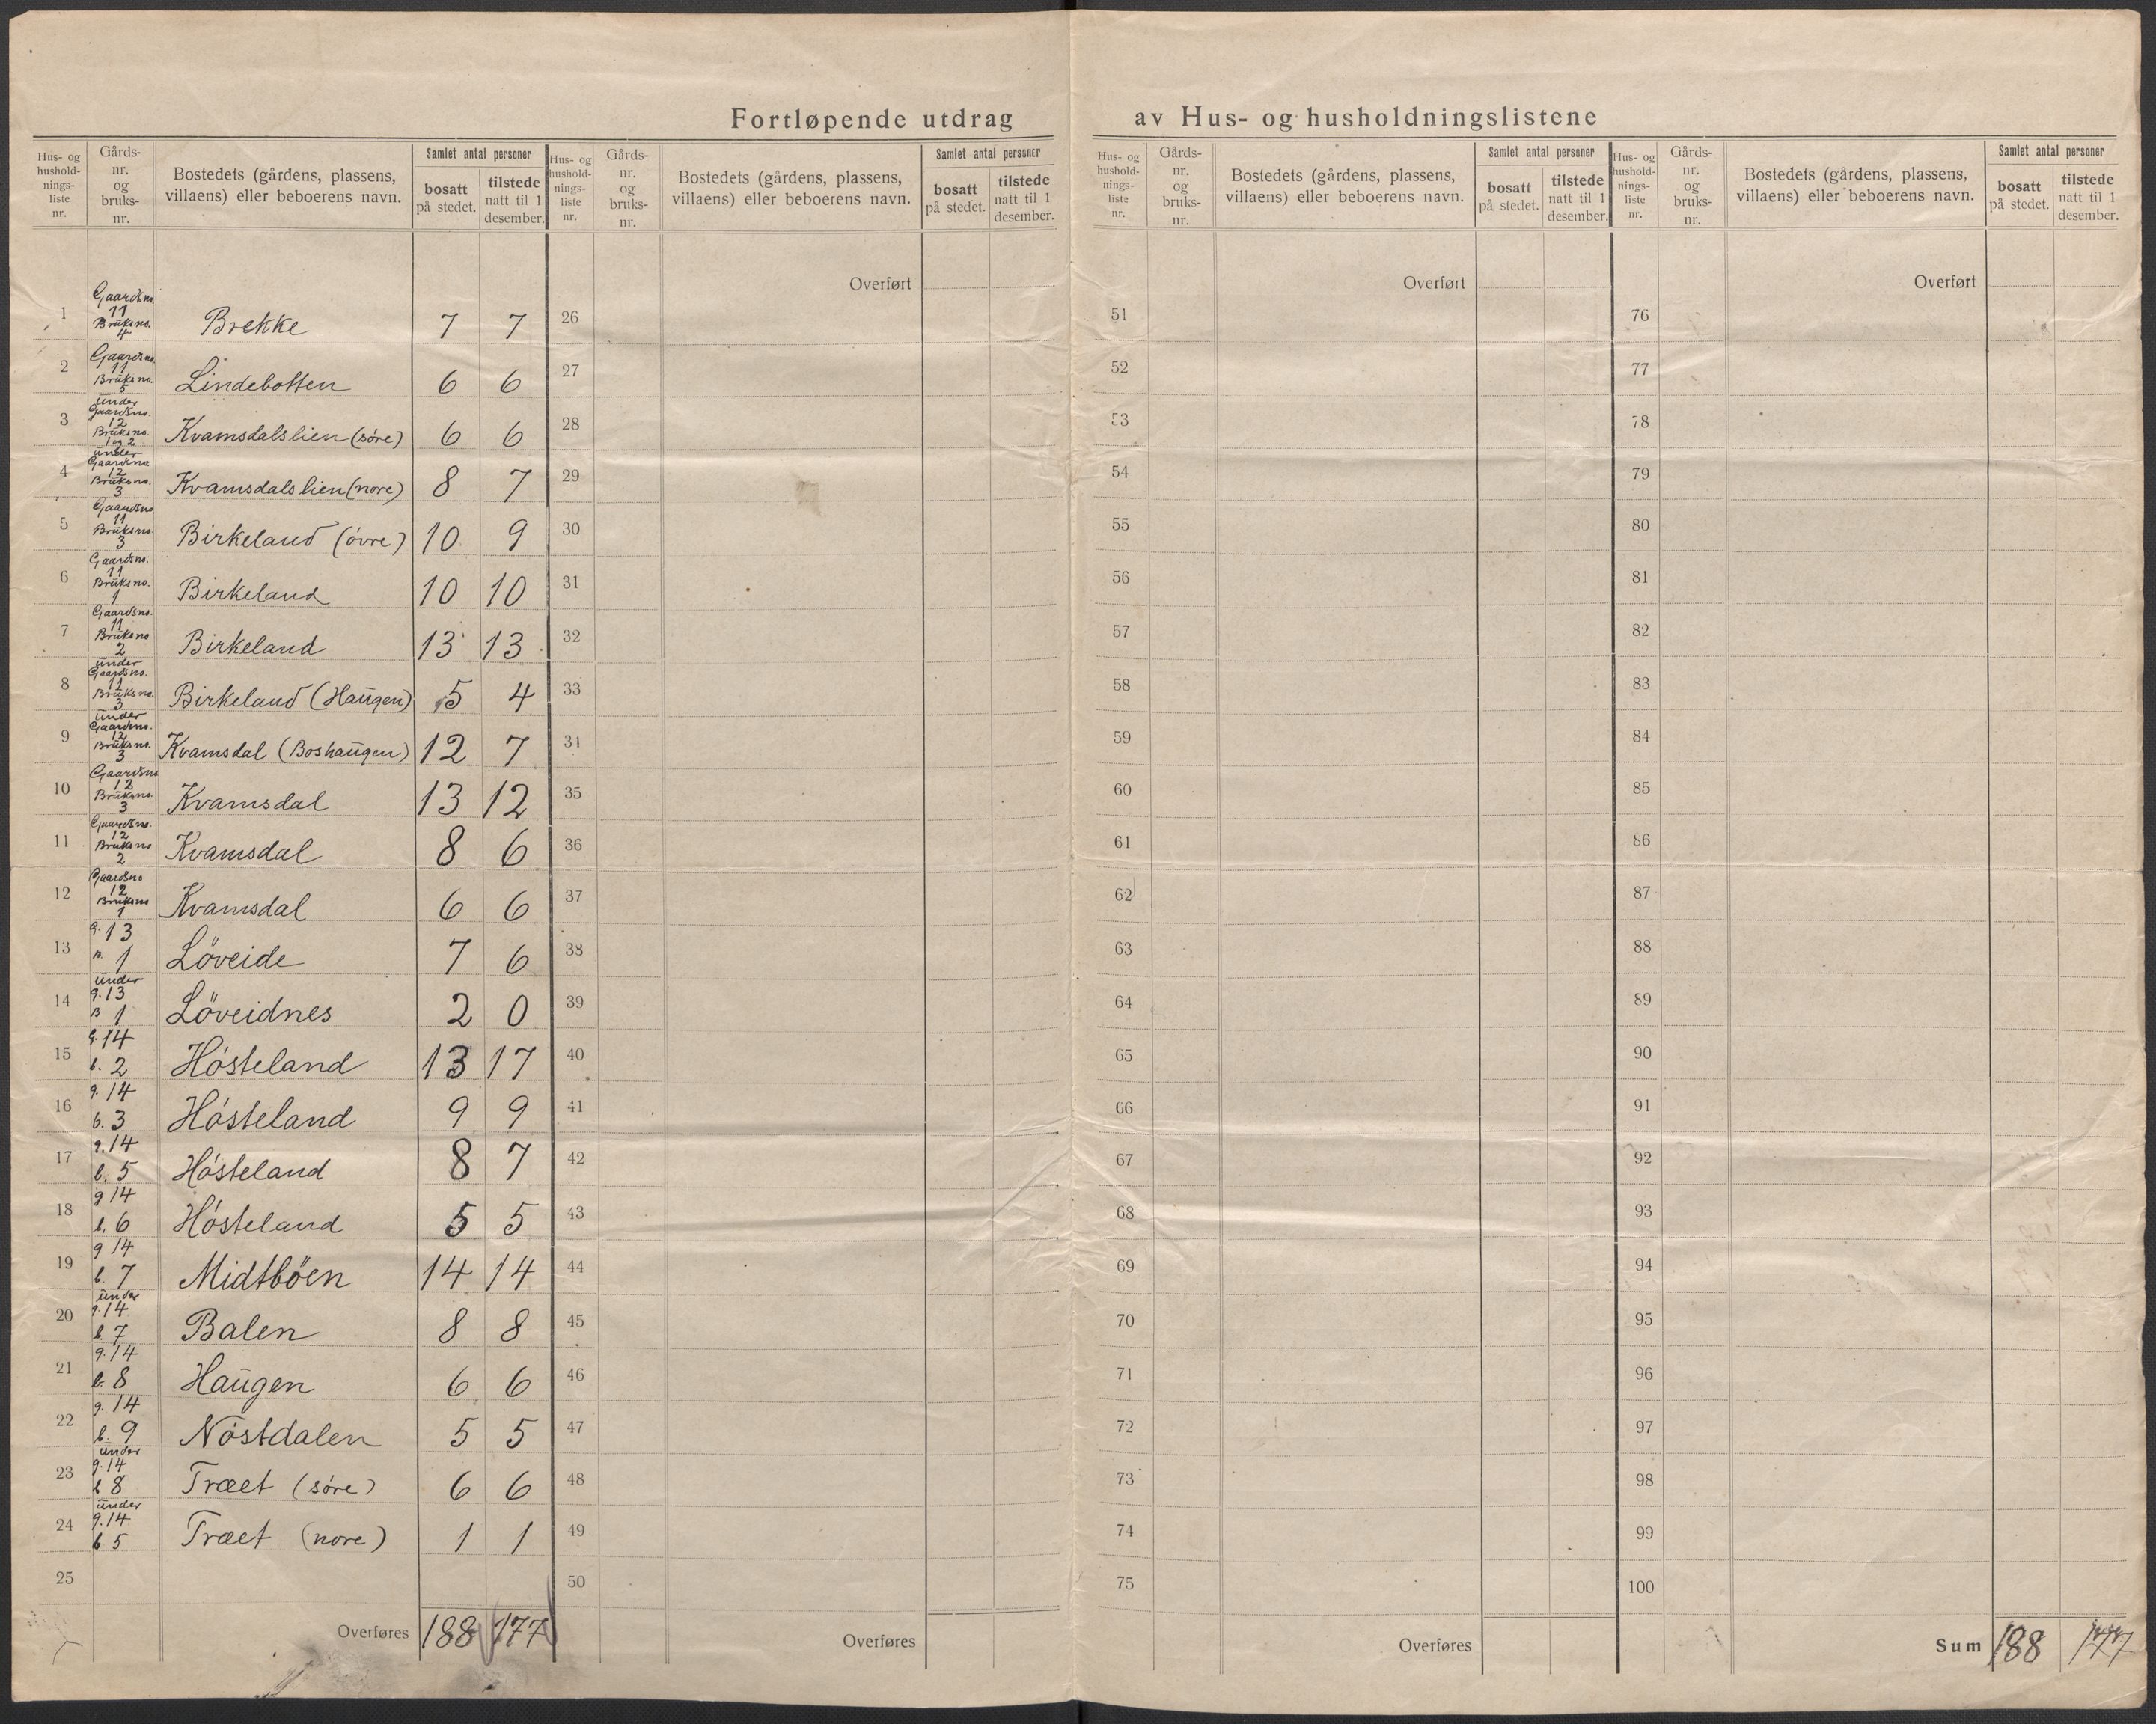 Fortløpende utdrag av Hus- og husholdningslistene
Hus- og hushold-nings-liste nr. | Gårds-nr. og bruks-nr. | Bostedets (gårdens, plassens, villaens) eller beboerens navn. | Samlet antal personer | bosatt på stedet. | tilstede natt til 1 desember.
Hus- og hushold-nings-liste nr. | Gårds-nr. og bruks-nr. | Bostedets (gårdens, plassens, villaens) eller beboerens navn. | Samlet antal personer | bosatt på stedet. | tilstede natt til 1 desember.
Hus- og hushold-nings-liste nr. | Gårds-nr. og bruks-nr. | Bostedets (gårdens, plassens, villaens) eller beboerens navn. | Samlet antal personer | bosatt på stedet. | tilstede natt til 1 desember.
Hus- og hushold-nings-liste nr. | Gårds-nr. og bruks-nr. | Bostedets (gårdens, plassens, villaens) eller beboerens navn. | Samlet antal personer | bosatt på stedet. | tilstede natt til 1 desember.
Overført Overført Overført
1 Gaardsno. 11 Bruksno. 4 Brekke 7 7 26 51 76
2 Gaardsno. 11 Bruksno. 5 Lindebotten 6 6 27 52 77
3 under Gaardsno. 12 Bruksno. 1 og 2 Kvamsdalslien (søre) 6 6 28 53 78
4 under Gaardsno. 12 Bruksno. 3 Kvamsdalslien (nore) 8 7 29 54 79
5 Gaardsno. 11 Bruksno. 3 Birkeland (øvre) 10 9 30 55 80
6 Gaardsno. 11 Bruksno. 1 Birkeland 10 10 31 56 81
7 Gaardsno. 11 Bruksno 2 Birkeland 13 13 32 57 82
8 under Gaardsno. 11 Bruksno. 3 Birkeland (Haugen) 5 4 33 58 83
9 under Gaardsno. 12 Bruksno. 3 Kvamsdal (Boshaugen) 12 7 34 59 84
10 Gaardsno 12 Bruksno. 3 Kvamsdal 13 12 35 60 85
11 Gaardsno. 12 Bruksno 2 Kvamsdal 8 6 36 61 86
12 Gaardsno 12 Bruksno 1 Kvamsdal 6 6 37 62 87
13 g. 13 B. 1 Löveide 7 6 38 63 88
14 under g. 13 B 1 Löveidnes 2 0 39 64 89
15 g. 14 b. 2 Hósteland 13 17 40 65 90
16 g. 14 b. 3 Hósteland 9 9 41 66 91
17 g. 14 b. 5 Hósteland 8 7 42 67 92
18 g 14 b. 6 Hósteland 5 5 43 68 93
19 g 14 b. 7 Midtböen 14 14 44 69 94
20 under g. 14 b. 7 Balen 8 8 45 70 95
21 g. 14 b. 8 Haugen 6 6 46 71 96
22 g. 14 b. 9 Nóstdalen 5 5 47 72 97
23 under g. 14 b 8 Træet (sóre) 6 6 48 73 98
24 under g. 14 b 5 Træet (nore) 1 1 49 74 99
25 50 75 100
Overføres 188 177 Overføres Overføres Sum 188 177